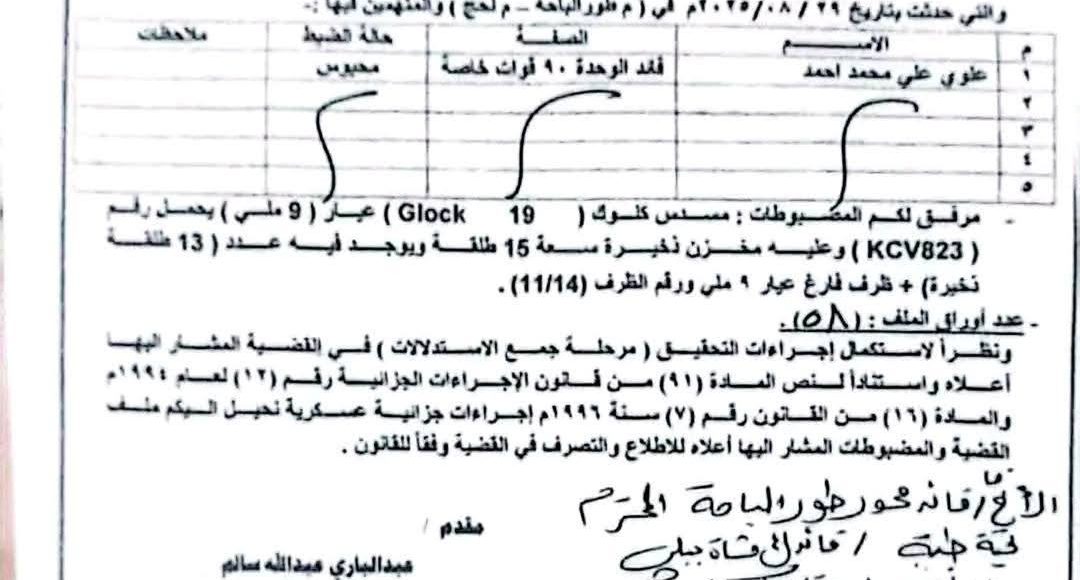 والتي حدثت بتاريخ ٢٩/ ٠٨ / ٢٠٢٥م في ( م طورالباحة – م لحج ) والمتهمين فيها :-
م الاســـم الصفـة حالة الضبط ملاحظات
١ علوي علي محمد احمد قائد الوحدة ٩٠ قوات خاصة محبوس
٢
٣
٤
٥
- مرفق لكم المضبوطات : مسدس كلوك ( Glock 19 ) عيار ( 9 ملي ) يحمل رقم
( KCV823 ) وعليه مخزن ذخيرة سعة 15 طلقة ويوجد فيه عدد ( 13 طلقة
ذخيرة) + ظرف فارغ عيار ٩ ملي ورقم الظرف (11/14) .
- عدد أوراق الملف : (٥٨).
ونظراً لاستكمال إجراءات التحقيق ( مرحلة جمع الاستدلالات ) في القضية المشار اليها
أعلاه واستناداً لنص المادة (٩١) من قانون الإجراءات الجزائية رقم (١٣) لعام ١٩٩٤م
والمادة (١٦) من القانون رقم (٧) سنة ١٩٩٦م إجراءات جزائية عسكرية نحيل اليكم ملف
القضية والمضبوطات المشار اليها أعلاه للاطلاع والتصرف في القضية وفقاً للقانون .
الأخ / قائد محور طور الباحة المحترم
تحية طيبة /
مقدم /
عبدالباري عبدالله سالم